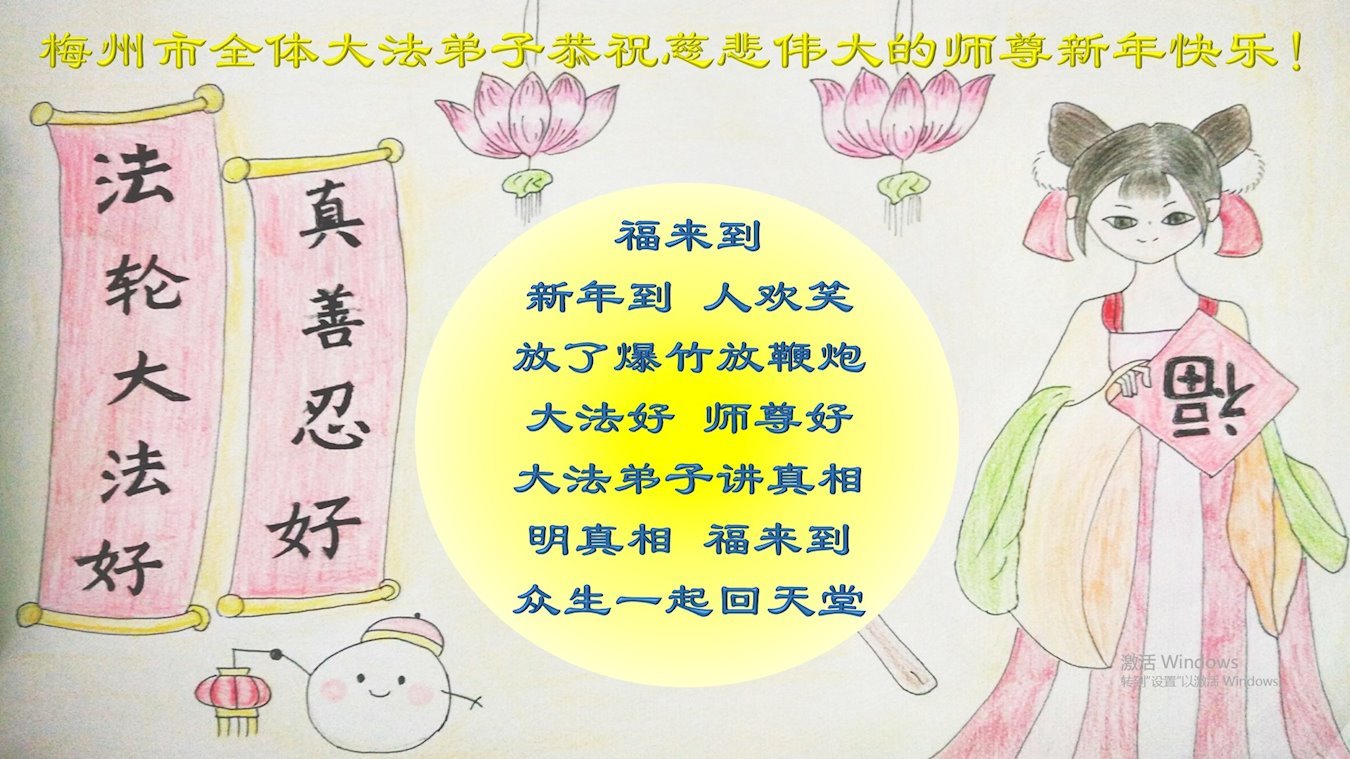 梅州市全体大法弟子恭祝慈悲伟大的师尊新年快乐！
法轮大法好
真善忍好
福来到
新年到 人欢笑
放了爆竹放鞭炮
大法好 师尊好
大法弟子讲真相
明真相 福来到
众生一起回天堂
福
激活 Windows
转到"设置"以激活 Windows